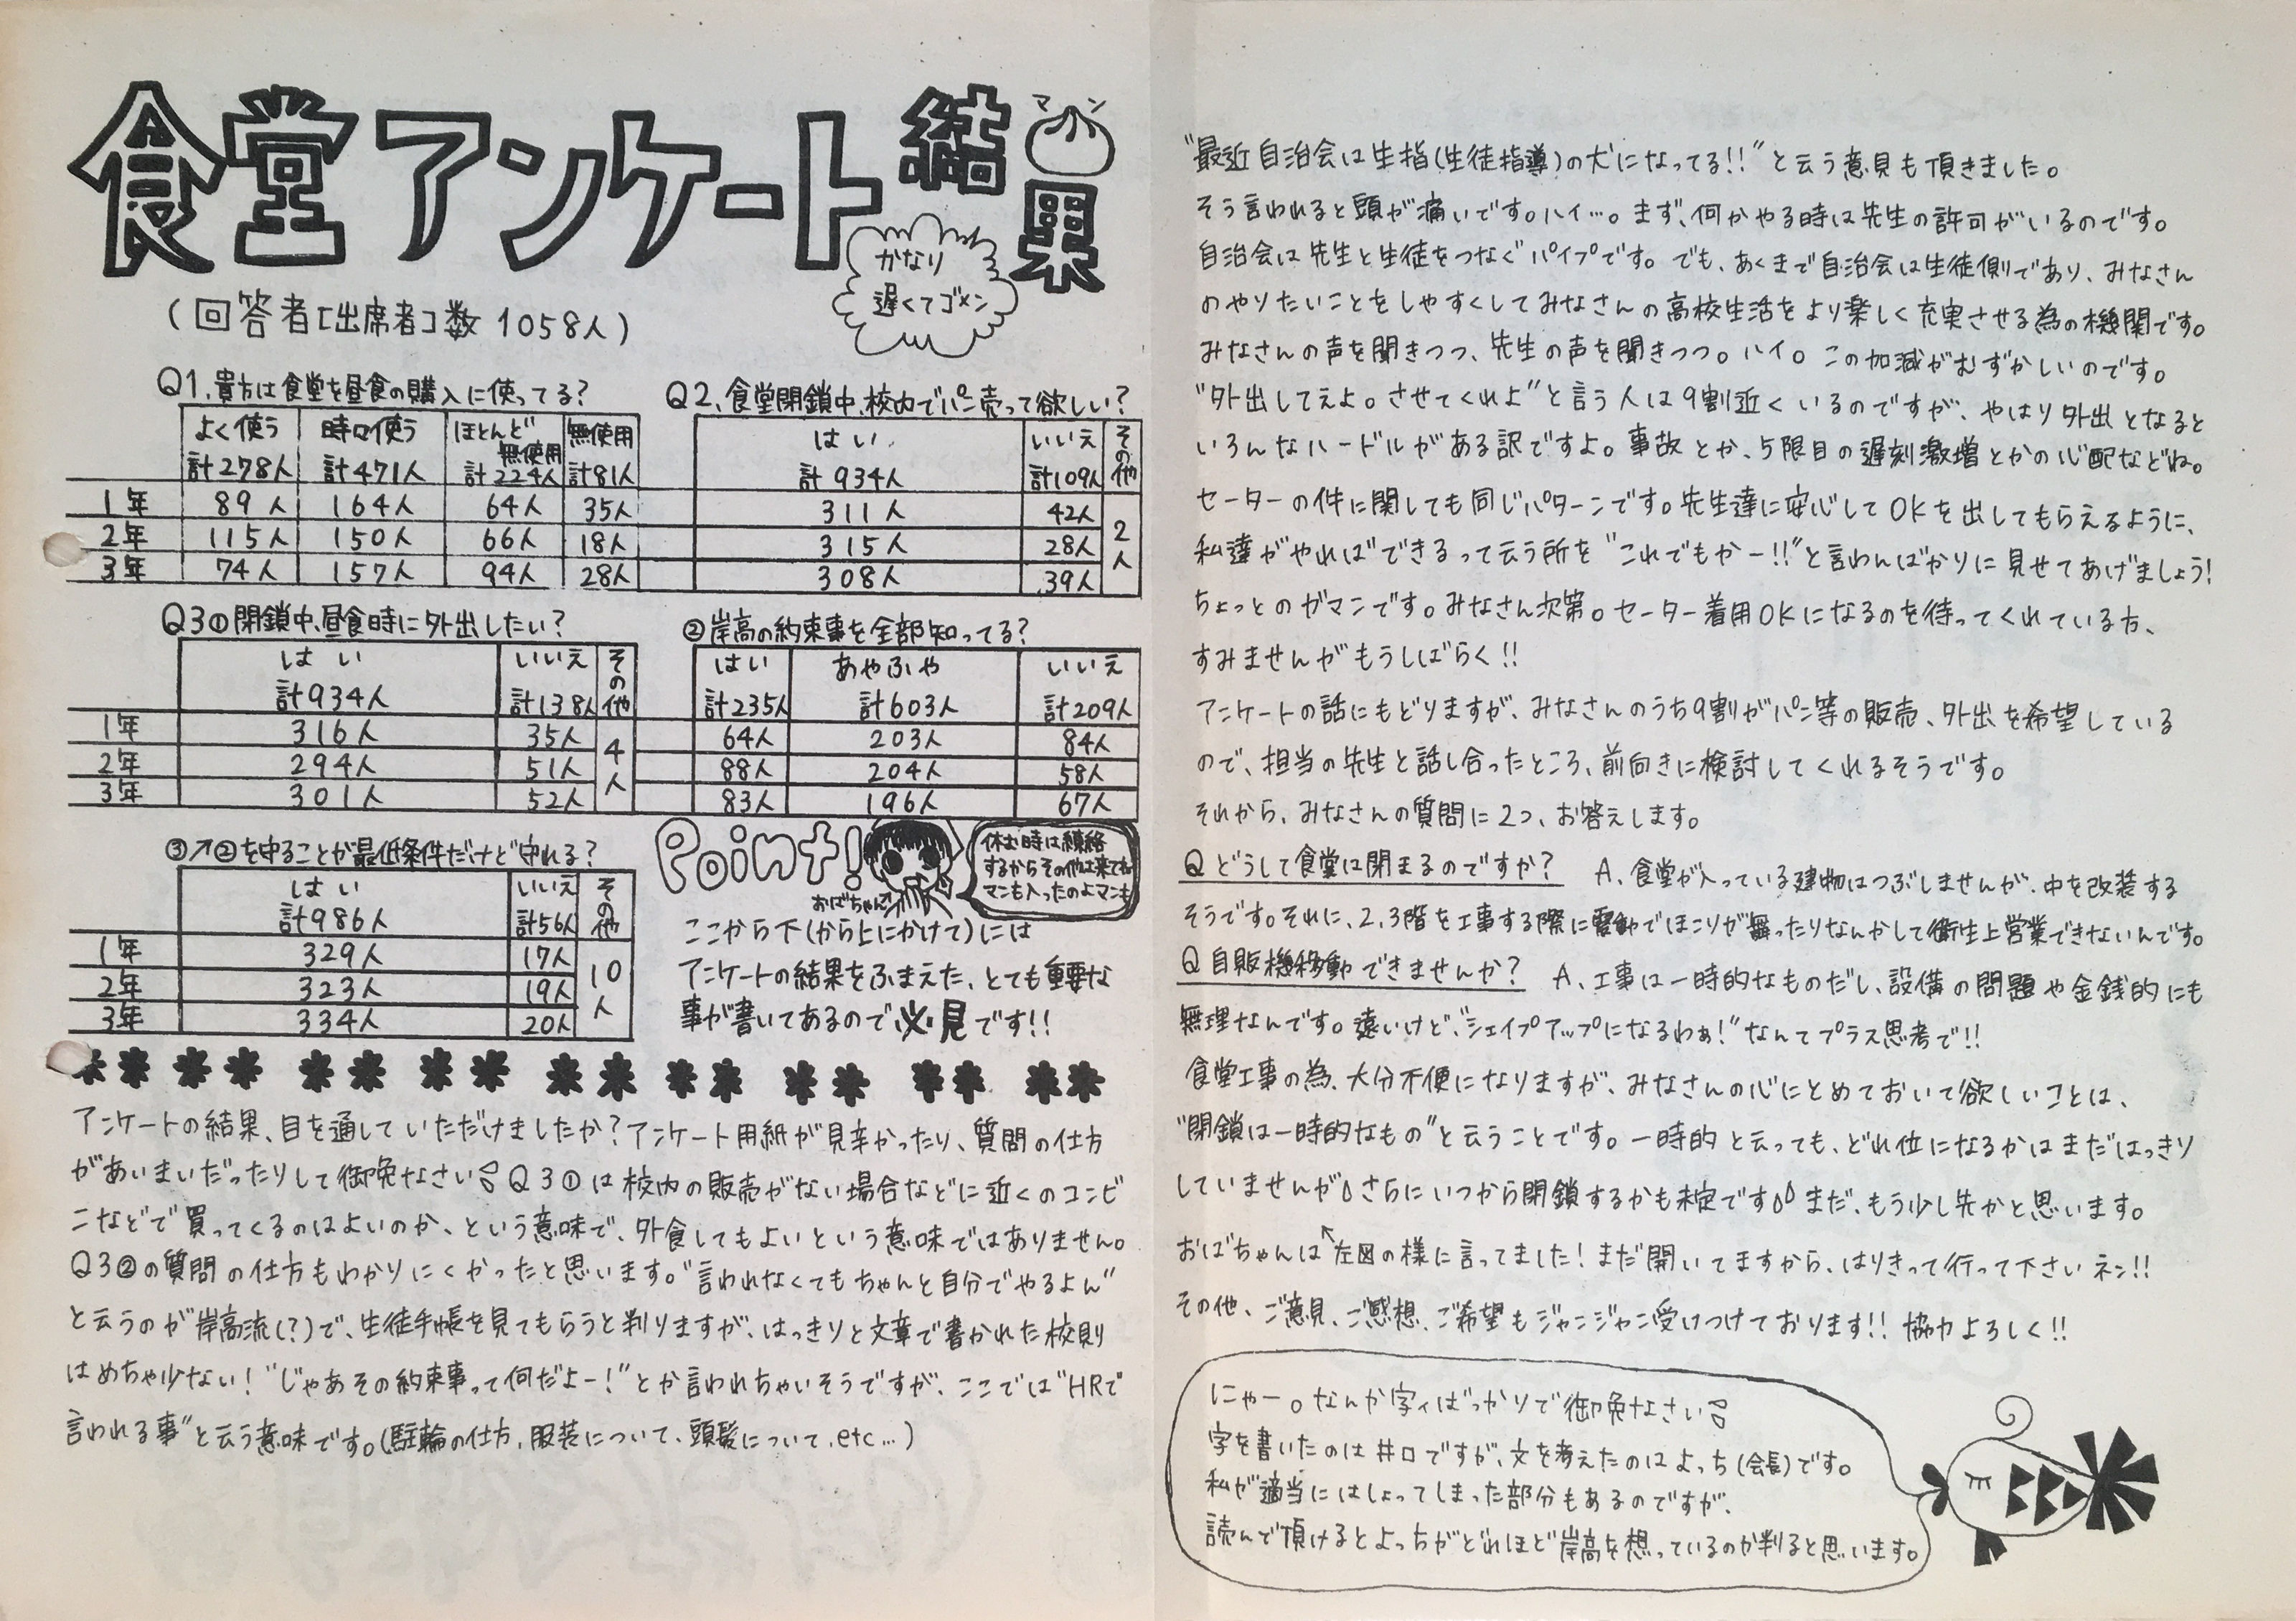 食堂アンケート結果
マン
かなり
遅くてゴメン
(回答者[出席者]数 1058人)
Q1、貴方は食堂を昼食の購入に使ってる?
よく使う 時々使う ほとんど無使用 無使用
計278人 計471人 計224人 計81人
1年 89人 164人 64人 35人
2年 115人 150人 66人 18人
3年 74人 157人 94人 28人
Q2、食堂閉鎖中、校内でパン売って欲しい?
はい いいえ その他
計934人 計109人
311人 42人 2人
315人 28人
308人 39人
Q3①閉鎖中、昼食時に外出したい?
はい いいえ その他
計934人 計138人
1年 316人 35人 4人
2年 294人 51人
3年 301人 52人
②岸高の約束事を全部知ってる?
はい あやふや いいえ
計235人 計603人 計209人
64人 203人 84人
88人 204人 58人
83人 196人 67人
③↗②を守ることが最低条件だけど守れる?
はい いいえ その他
計986人 計56人
1年 329人 17人 10人
2年 323人 19人
3年 334人 20人
Point!
おばちゃん
休む時は連絡
するからその他は来てね
マンも入ったのよマンも
ここから下(から上にかけて)には
アンケートの結果をふまえた、とても重要な
事が書いてあるので必見です!!
アンケートの結果、目を通していただけましたか?アンケート用紙が見辛かったり、質問の仕方
があいまいだったりして御免なさい Q3①は校内の販売がない場合などに近くのコンビ
ニなどで買ってくるのはよいのか、という意味で、外食してもよいという意味ではありません。
Q3②の質問の仕方もわかりにくかったと思います。"言われなくてもちゃんと自分でやるよん"
と云うのが岸高流(?)で、生徒手帳を見てもらうと判りますが、はっきりと文章で書かれた校則
はめちゃ少ない!"じゃあその約束事って何だよー!"とか言われちゃいそうですが、ここでは"HRで
言われる事"と云う意味です。(駐輪の仕方,服装について、頭髪について,etc…)
"最近自治会は生指(生徒指導)の犬になってる!!"と云う意見も頂きました。
そう言われると頭が痛いです。ハイ…。まず、何かやる時は先生の許可がいるのです。
自治会は先生と生徒をつなぐパイプです。でも、あくまで自治会は生徒側であり、みなさん
のやりたいことをしやすくしてみなさんの高校生活をより楽しく充実させる為の機関です。
みなさんの声を聞きつつ、先生の声を聞きつつ。ハイ。この加減がむずかしいのです。
"外出してえよ。させてくれよ"と言う人は9割近くいるのですが、やはり外出となると
いろんなハードルがある訳ですよ。事故とか、5限目の遅刻激増とかの心配などね。
セーターの件に関しても同じパターンです。先生達に安心してOKを出してもらえるように、
私達がやればできるって云う所を"これでもかー!!"と言わんばかりに見せてあげましょう!
ちょっとのガマンです。みなさん次第。セーター着用OKになるのを待ってくれている方、
すみませんがもうしばらく!!
アンケートの話にもどりますが、みなさんのうち9割がパン等の販売、外出を希望している
ので、担当の先生と話し合ったところ、前向きに検討してくれるそうです。
それから、みなさんの質問に2つ、お答えします。
Q どうして食堂は閉まるのですか? A、食堂が入っている建物はつぶしませんが、中を改装する
そうです。それに、2,3階を工事する際に震動でほこりが舞ったりなんかして衛生上営業できないんです。
Q 自販機移動できませんか? A、工事は一時的なものだし、設備の問題や金銭的にも
無理なんです。遠いけど、"シェイプアップになるわぁ!"なんてプラス思考で!!
食堂工事の為、大分不便になりますが、みなさんの心にとめておいて欲しいことは、
"閉鎖は一時的なもの"と云うことです。一時的と云っても、どれ位になるかはまだはっきり
していませんが さらにいつから閉鎖するかも未定です まだ、もう少し先かと思います。
おばちゃんは左図の様に言ってました!まだ開いてますから、はりきって行って下さいネン!!
その他、ご意見、ご感想、ご希望もジャンジャン受けつけております!!協力よろしく!!
にゃー。なんか字ィばっかりで御免なさい
字を書いたのは井口ですが、文を考えたのはよっち(会長)です。
私が適当にはしょってしまった部分もあるのですが、
読んで頂けるとよっちがどれほど岸高を想っているのか判ると思います。